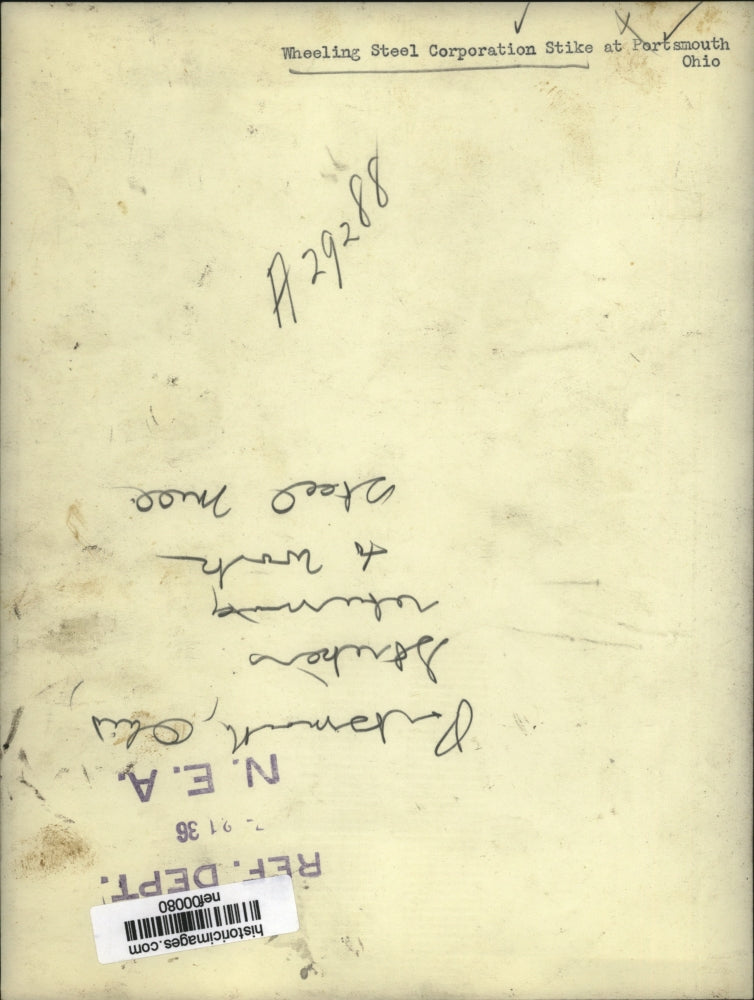 Wheeling Steel Corporation Stike at Portsmouth
Ohio
A 29288
historicimages.com
nef00080
REF. DEPT.
21 36
N. E. A.
Portsmouth, Ohio
Strikers
returning
to work
steel mill